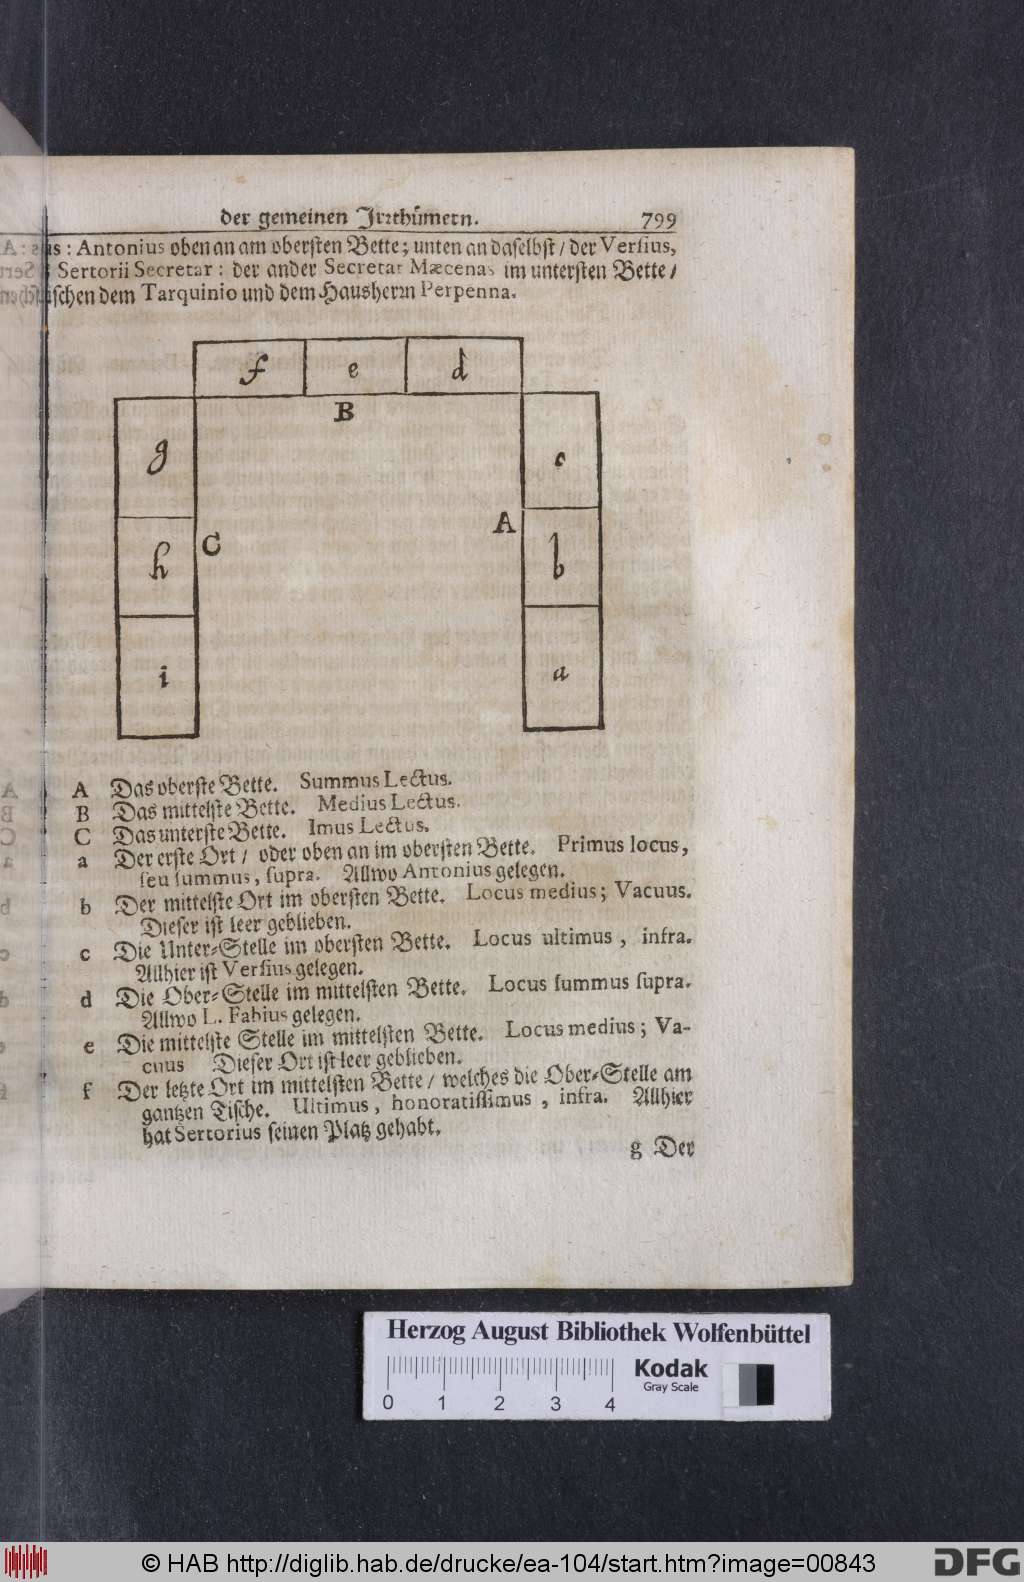 der gemeinen Jrrthümern. 799
us: Antonius oben an am obersten Bette; unten an daselbst / der Versius,
Sertorii Secretar: der ander Secretar Mæcenas im untersten Bette /
ischen dem Tarquinio und dem Hausherrn Perpenna.
f e d
B
g c
C A
h b
i a
A Das oberste Bette. Summus Lectus.
B Das mittelste Bette. Medius Lectus.
C Das unterste Bette. Imus Lectus.
a Der erste Ort / oder oben an im obersten Bette. Primus locus,
seu summus, supra. Allwo Antonius gelegen.
b Der mittelste Ort im obersten Bette. Locus medius; Vacuus.
Dieser ist leer geblieben.
c Die Unter-Stelle im obersten Bette. Locus ultimus, infra.
Allhier ist Versius gelegen.
d Die Ober-Stelle im mittelsten Bette. Locus summus supra.
Allwo L. Fabius gelegen.
e Die mittelste Stelle im mittelsten Bette. Locus medius; Va-
cuus Dieser Ort ist leer geblieben.
f Der letzte Ort im mittelsten Bette / welches die Ober-Stelle am
gantzen Tische. Ultimus, honoratissimus, infra. Allhier
hat Sertorius seinen Platz gehabt.
g Der
Herzog August Bibliothek Wolfenbüttel
Kodak
Gray Scale
0 1 2 3 4
© HAB http://diglib.hab.de/drucke/ea-104/start.htm?image=00843
DFG